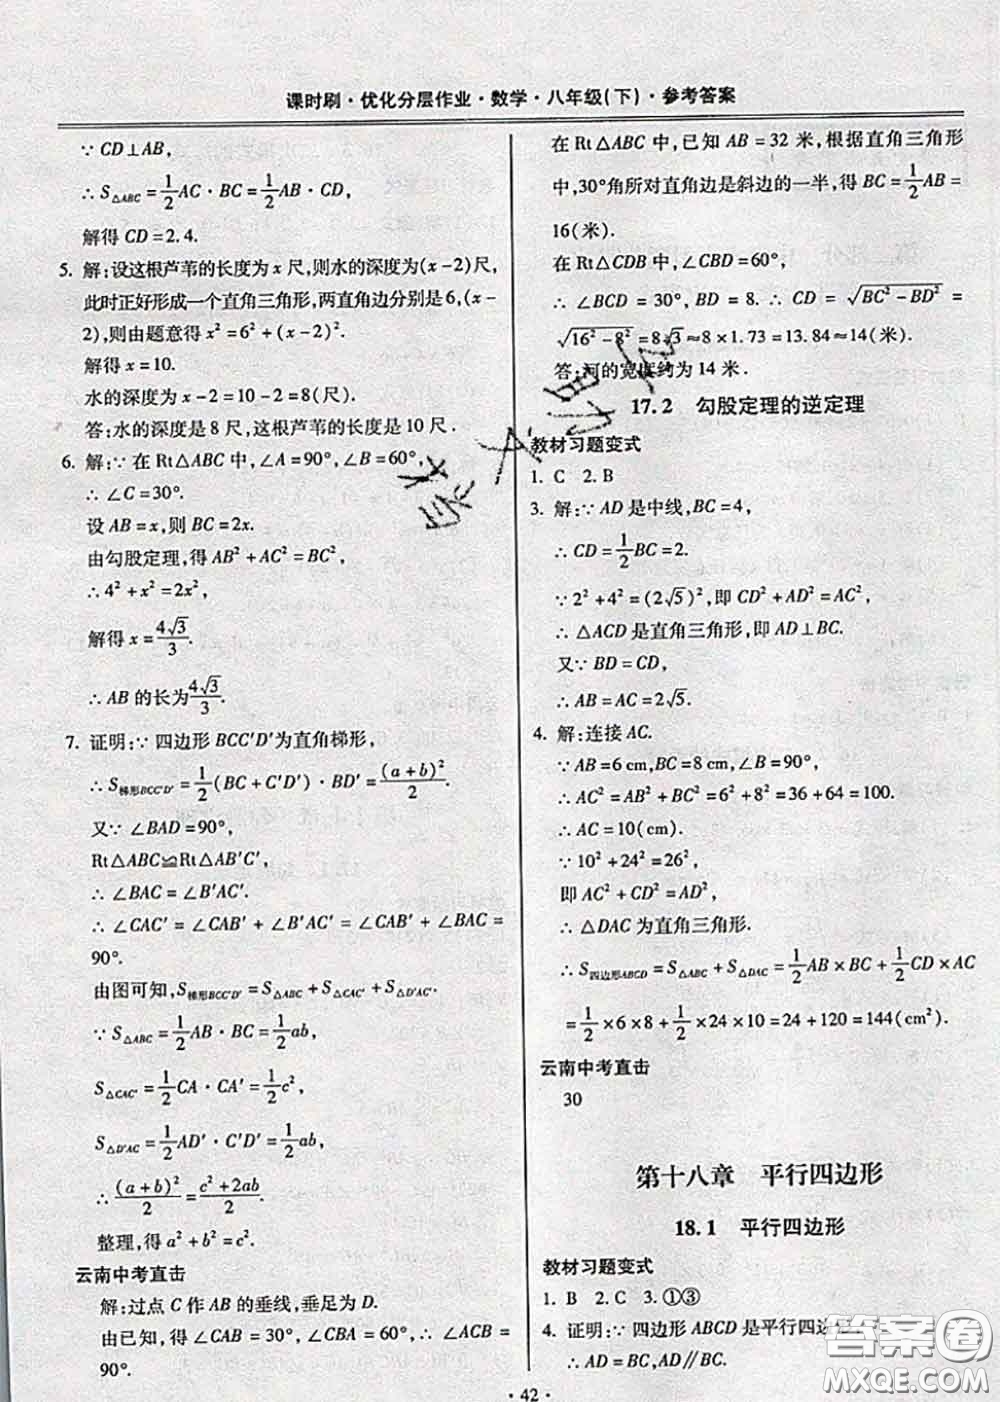 课时刷·优化分层作业·数学·八年级(下)·参考答案
∵CD⊥AB,
∴S△ABC=1/2AC·BC=1/2AB·CD,
解得 CD=2.4.
5. 解:设这根芦苇的长度为 x 尺,则水的深度为(x-2)尺,
此时正好形成一个直角三角形,两直角边分别是6,(x-
2),则由题意得 x²=6²+(x-2)²
解得 x=10.
水的深度为 x-2=10-2=8(尺).
答:水的深度是 8 尺,这根芦苇的长度是 10 尺.
6. 解:∵在 Rt△ABC 中,∠A=90°,∠B=60°,
∴∠C=30°.
设 AB=x,则 BC=2x.
由勾股定理,得 AB²+AC²=BC²,
∴4²+x²=2x²,
解得 x=4√3/3.
∴AB 的长为4√3/3.
7. 证明:∵四边形 BCC′D′为直角梯形,
∴S梯形BCC′D′=1/2(BC+C′D′)·BD′=(a+b)²/2.
又∵∠BAD=90°,
Rt△ABC≌Rt△AB′C′,
∴∠BAC=∠B′AC′.
∴∠CAC′=∠CAB′+∠B′AC′=∠CAB′+∠BAC=
90°.
由图可知,S梯形BCC′D′=S△ABC+S△CAC′+S△D′AC′.
∵S△ABC=1/2AB·BC=1/2ab,
S△CAC′=1/2CA·CA′=1/2c²,
S△D′AC=1/2AD′·C′D′=1/2ab,
∴(a+b)²/2=c²+2ab/2.
整理,得 a²+b²=c².
云南中考直击
解:过点 C 作 AB 的垂线,垂足为 D.
由已知,得∠CAB=30°,∠CBA=60°,∴∠ACB=
90°.
在 Rt△ABC 中,已知 AB=32 米,根据直角三角形
中,30°角所对直角边是斜边的一半,得 BC=1/2AB=
16(米).
在 Rt△CDB 中,∠CBD=60°,
∴∠BCD=30°,BD=8.∴CD=√(BC²-BD²)=
√(16²-8²)=8√3≈8×1.73=13.84≈14(米).
答:河的宽度约为 14 米.
17.2 勾股定理的逆定理
教材习题变式
1. C 2. B
3. 解:∵AD 是中线,BC=4,
∴CD=1/2BC=2.
∵2²+4²=(2√5)²,即 CD²+AD²=AC²,
∴△ACD 是直角三角形,即 AD⊥BC.
又∵BD=CD,
∴AB=AC=2√5.
4. 解:连接 AC.
∵AB=6 cm,BC=8 cm,∠B=90°,
∴AC²=AB²+BC²=6²+8²=36+64=100.
∴AC=10(cm).
∵10²+24²=26²,
即 AC²+CD²=AD²,
∴△DAC 为直角三角形.
∴S四边形ABCD=S△ABC+S△DAC=1/2AB×BC+1/2CD×AC
=1/2×6×8+1/2×24×10=24+120=144(cm²).
云南中考直击
30
第十八章 平行四边形
18.1 平行四边形
教材习题变式
1. B 2. C 3. ①③
4. 证明:∵四边形 ABCD 是平行四边形
∴AD=BC,AD∥BC.
·42·
答案卷
MXQE.COM